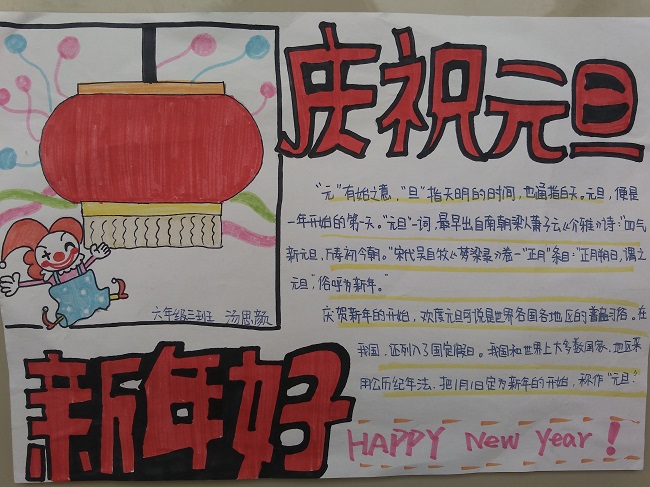 庆祝元旦
"元"有始之意,"旦"指天明的时间,也通指白天。元旦,便是
一年开始的第一天。"元旦"一词,最早出自南朝梁人萧子云《介雅》诗:"四气
新元旦,万寿初今朝。"宋代吴自牧《梦梁录》卷一"正月"条目:"正月朔日,谓之
元旦,俗呼为新年。"
庆贺新年的开始,欢度元旦可说是世界各国各地区的普遍习俗。在
我国,还列入了国定假日。我国和世界上大多数国家、地区采
用公历纪年法,把1月1日定为新年的开始,称作"元旦"。
六年级三班 汤思颜
新年好
HAPPY New Year!